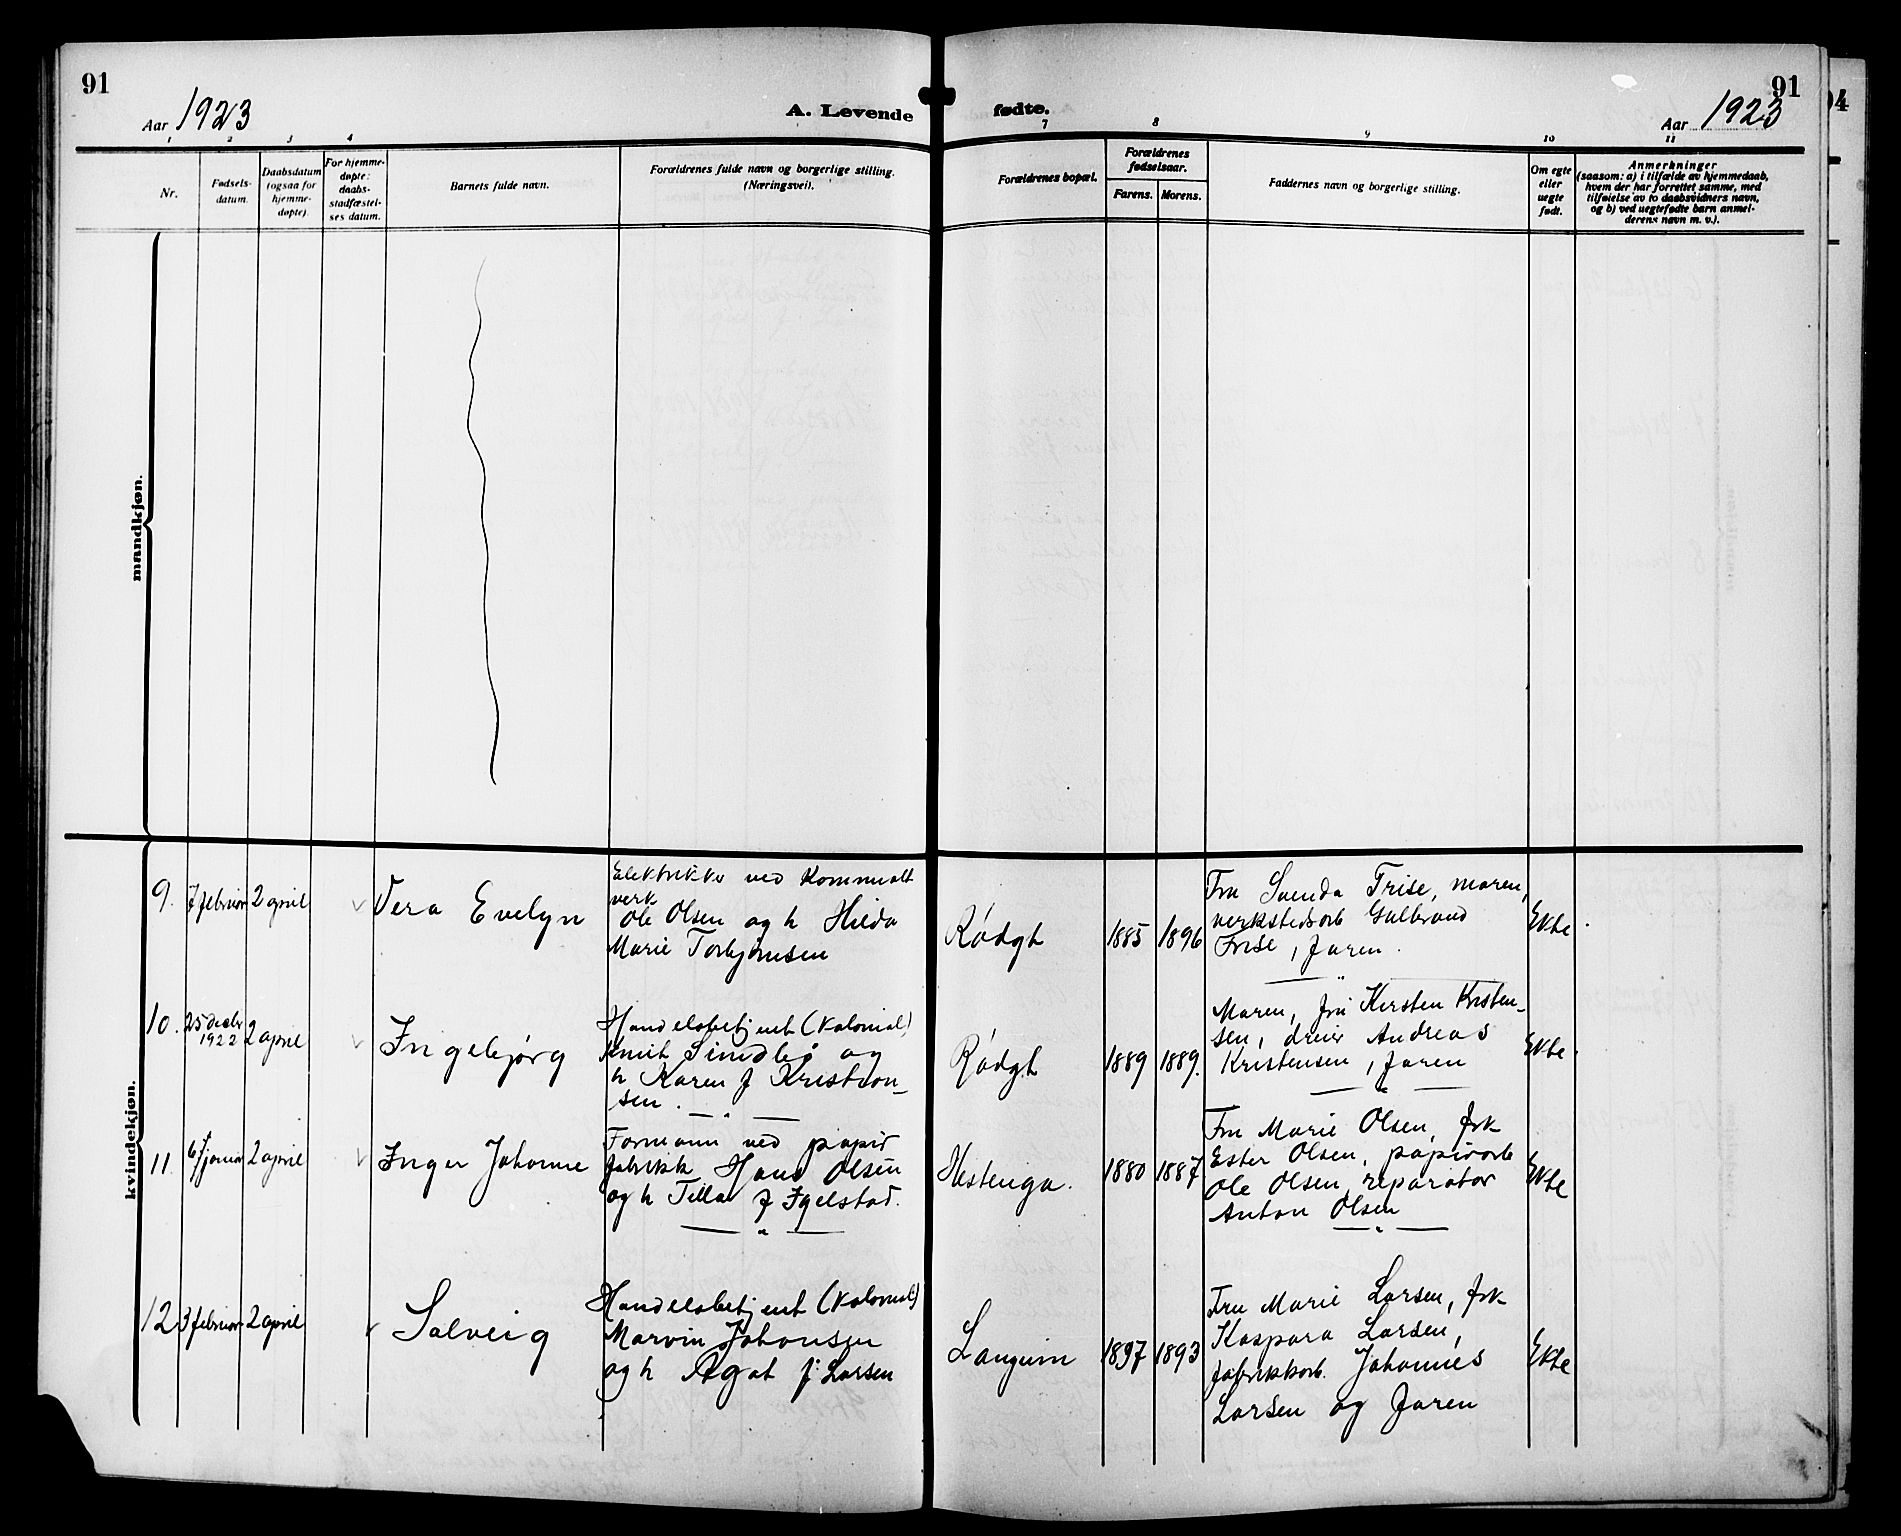 91
Aar 1923
A. Levende
fødte.
91
Aar 1923
1 2 3 4 7 8 9 10 11
Nr.
Fødsels-
datum.
Daabsdatum
(ogsaa for
hjemme-
døpte).
For hjemme-
døpte:
daabs-
stadfæstel-
ses datum.
Barnets fulde navn.
Forældrenes fulde navn og borgerlige stilling.
(Næringsvei).
Forældrenes bopæl.
Forældrenes
fødselsaar.
Farens. Morens.
Faddernes navn og borgerlige stilling.
Om egte
eller
uegte
født.
Anmerkninger
(saasom: a) i tilfælde av hjemmedaab,
hvem der har forrettet samme, med
tilføielse av to daabsvidners navn,
og b) ved uegtefødte barn anmel-
derens navn m. v.).
mandkjøn.
kvindekjøn.
9. 7 februar 2 april
Vera Evelyn
Elektriker ved Kommualt
verk
Ole Olsen og h Hilda
Marie Torbjørnsen
Rødgt
1885 1896
Fru Svenda Frise, moren,
verkstedsarb Gulbrand
Frise, faren.
Ekte
10. 25 decbr
1922 2 april
Ingebjørg
Handelsbetjent (kolonial)
og
h Karen f Kristian-
sen.
Rødgt
1889 1889.
Moren, fru Kirsten Kristen-
sen, dreier Andreas
Kristensen, faren
Ekte
11. 6 januar 2 april
Inger Johanne
Formann ved papir
fabrikk Hans Olsen
og h Tilla f Igelstad.
Hestenga.
1880 1887
Fru Marie Olsen, frk
Ester Olsen, papirarb
Ole Olsen, reparatør
Anton Olsen
Ekte
12 3 februar 2 april
Solveig
Handelsbetjent (kolonial)
Marvin Johansen
og h Agot f. Larsen
Langum
1897 1893
Fru Marie Larsen, frk
Kaspara Larsen,
fabrikkarb. Johannes
Larsen og faren
Ekte